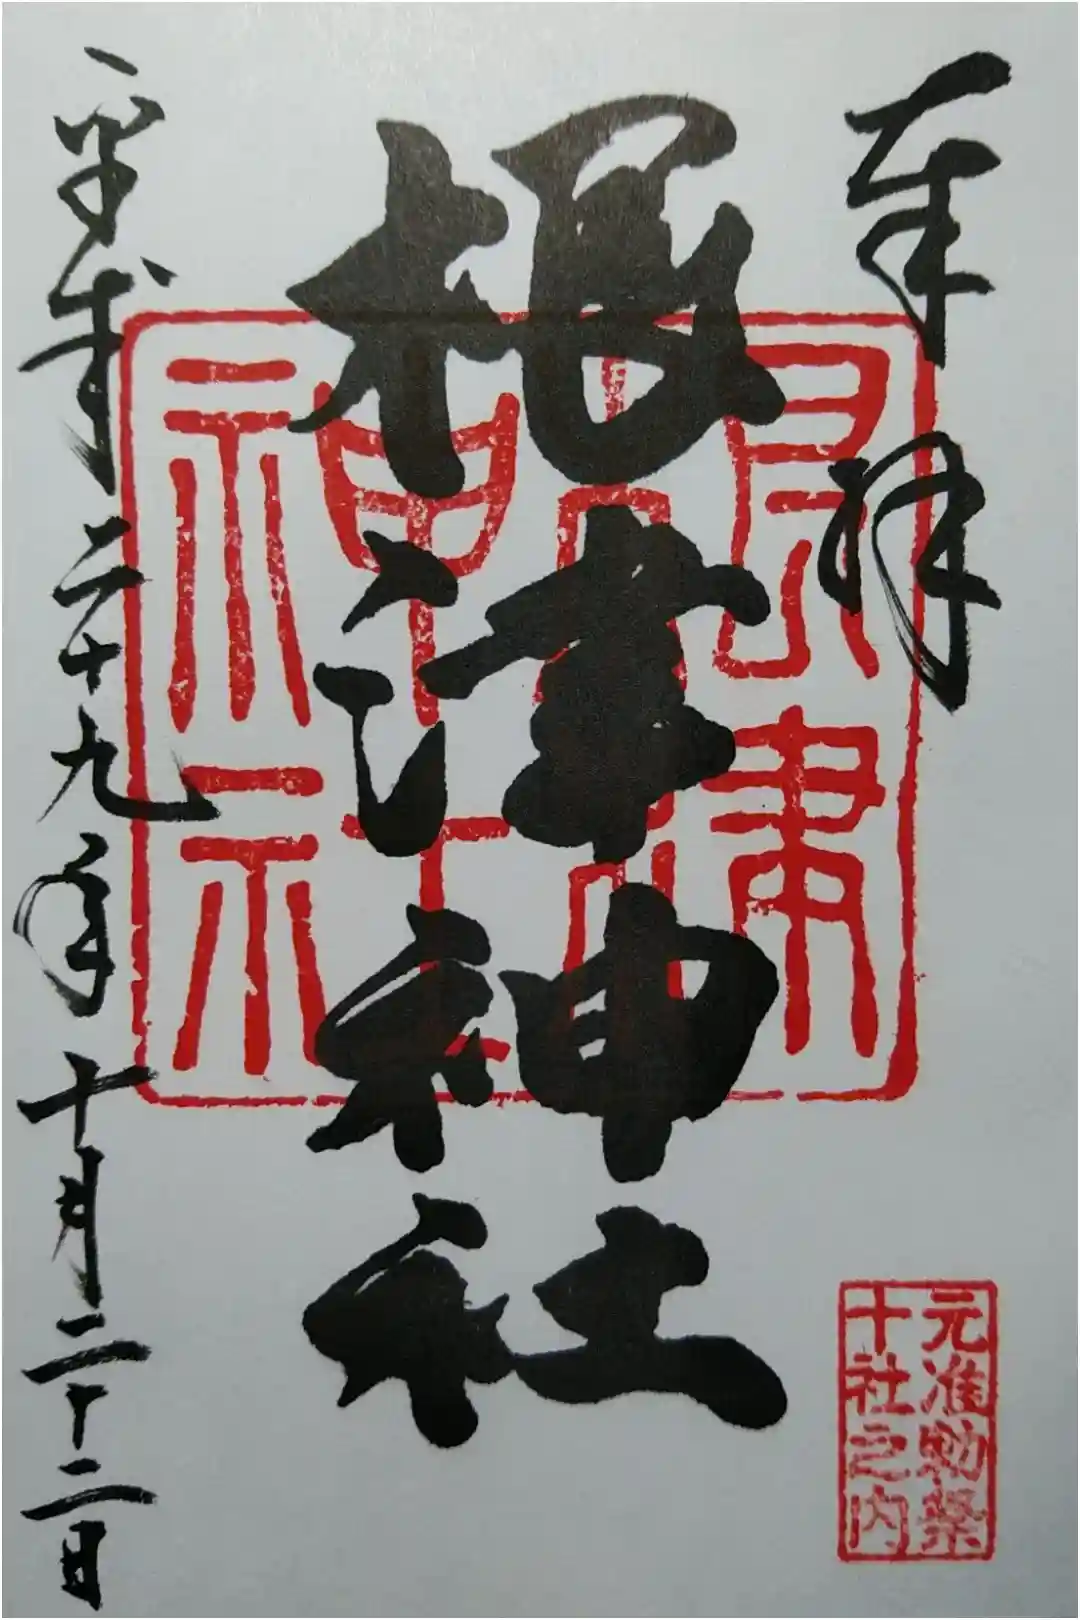 奉拝
根津神社
根津神社
元准勅祭
十社之内
平成二十九年十月二十二日